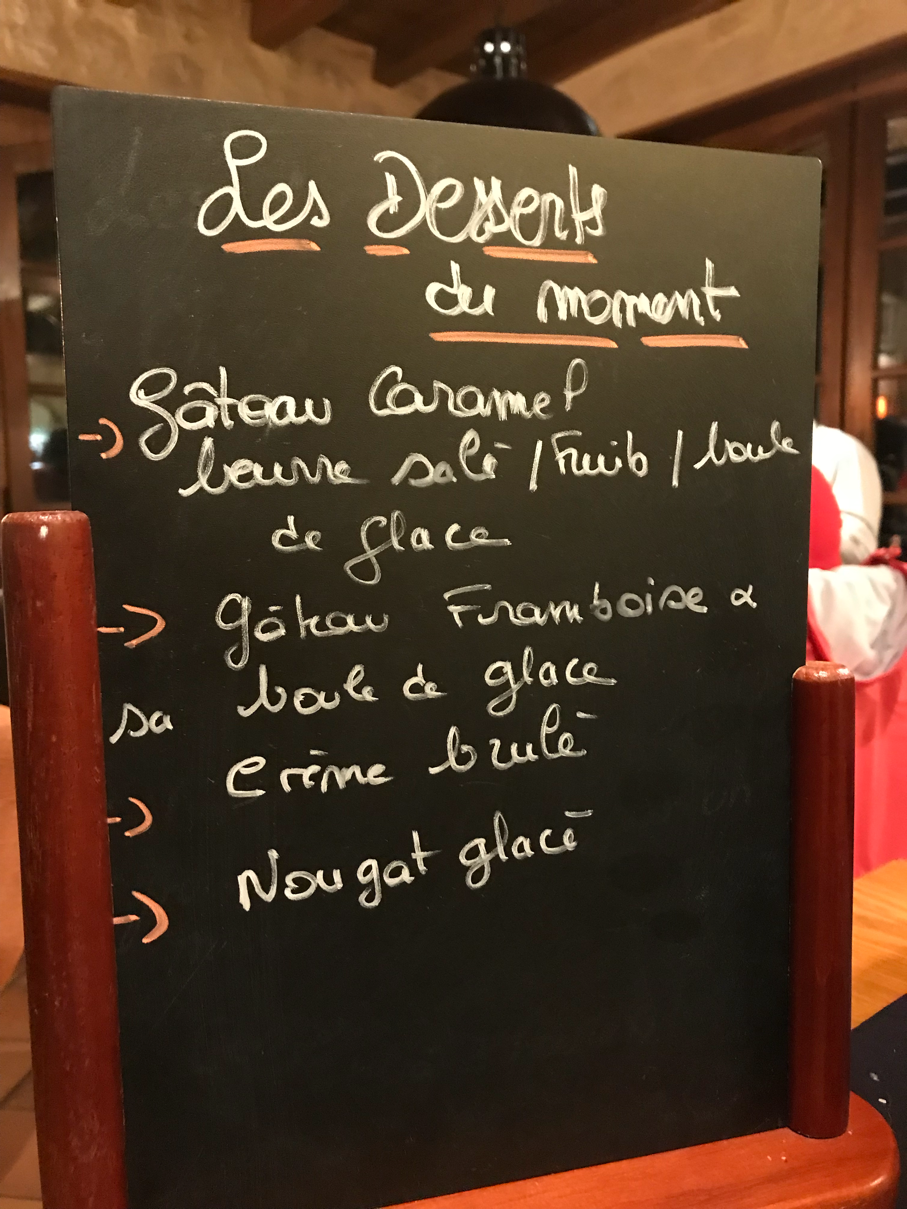 Les Desserts
du moment
Gâteau Caramel
beurre salé / Fruits / boule
de glace
Gâteau Framboise &
sa boule de glace
Crème brulé
Nougat glacé